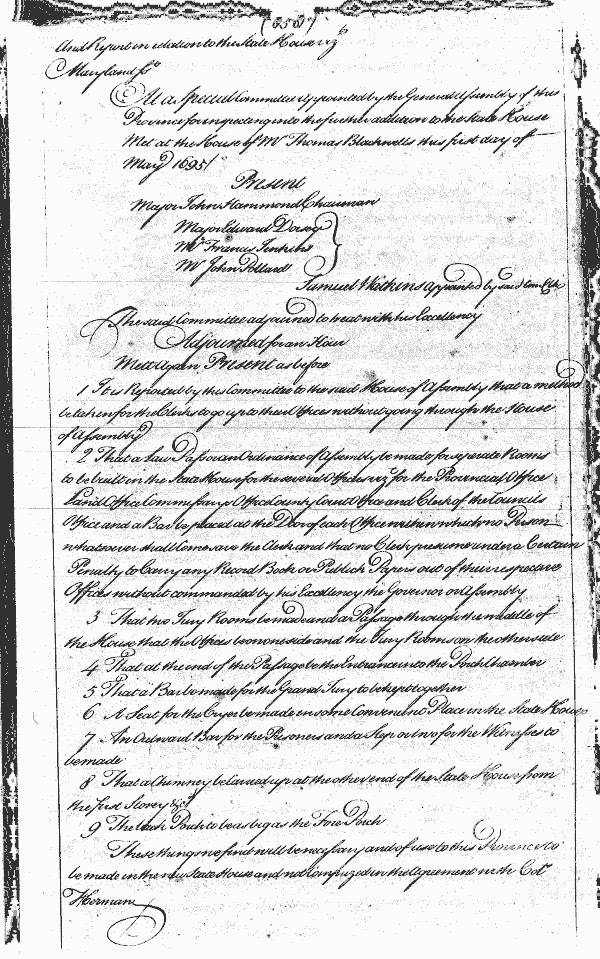 And Report in relation to the State House viz
Maryland ss
At a Special Committee Appointed by the General Assembly of this
Province for inspecting into the further addition to the State House
Met at the House of Mr Thomas Blackwells this first day of
May 1695/
Present
Major John Hammond Chairman
Major Edward Dorsey
Mr Francis Jenkins
Mr John Pollard
Samuel Watkins appointed by said Com Clk
The said Committee adjourned to treat with his Excellency
Adjourned for an Hour
Mett again Present as before
1 It is Reported by this Committee to the said House of Assembly that a method
be taken for the Clerks to go up to their Offices without going through the House
of Assembly
2 That a Law Pass or an Ordinance of Assembly be made for seperate Rooms
to be built in the State House for the several Offices viz for the Provincial Office
Land Office Commissarys Office County Court Office and Clerk of the Councils
Office and a Bar be placed at the Door of each Office within which no Person
whatsoever shall Come save the Clerk and that no Clerk presume under a Certain
Penalty to Carry any Record Book or Publick Papers out of their respective
Offices without commanded by his Excellency the Governor or Assembly
3 That two Jury Rooms be made and a Passage through the middle of
the House that the Offices be on one side and the Jury Rooms on the other side
4 That at the end of the Passage be the Entrance into the Porch Chamber
5 That a Bar be made for the Grand Jury to be kept together
6 A Seat for the Cryer be made in some Convenient Place in the State House
7 An Outward Bar for the Prisoners and a Step or two for the Witnesses to
be made
8 That a Chimney be Carried up at the other end of the State House from
the first Storey &c
9 The back Porch to be as big as the Fore Porch
These things we find will be necessary and of use to this Province to
be made in the new State House and not Comprized in the Agreement with Coll
Herman